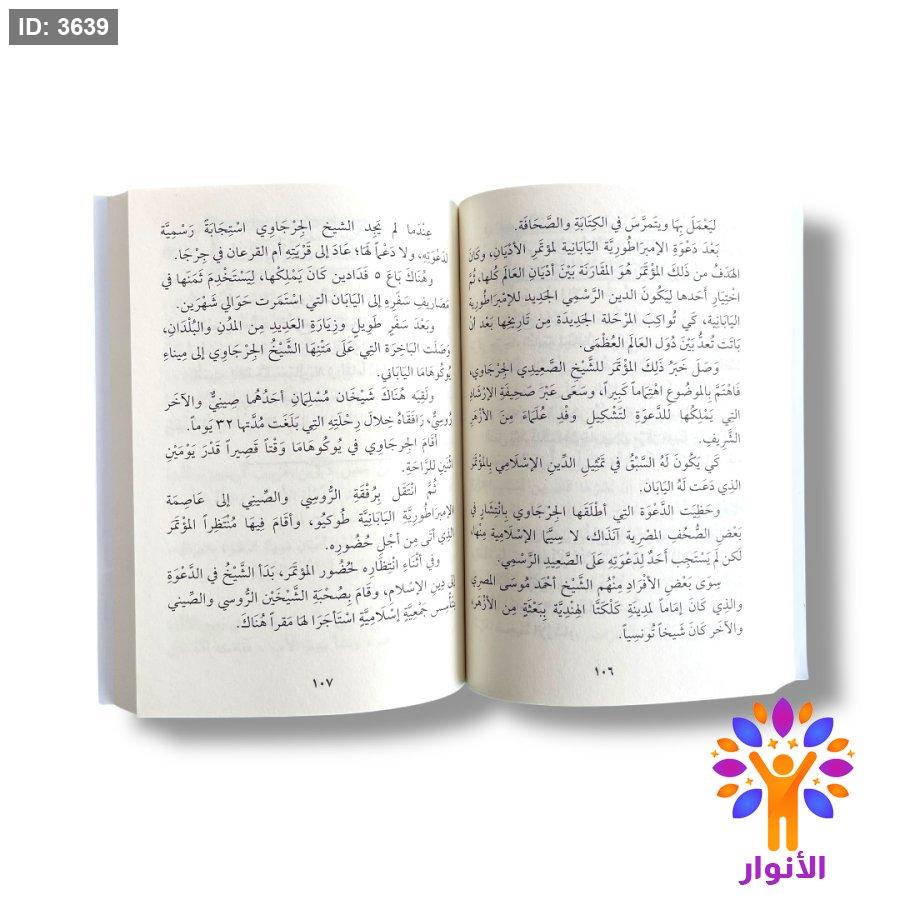 ID: 3639
لِيَعْمَلَ بِهَا ويَتَمَرَّسَ في الكِتَابَةِ والصَّحَافَةِ.
بَعْدَ دَعْوَةِ الإِمبَراطُوريَّة اليَابَانية لمؤتَمرِ الأَدْيَانِ، وكَانَ
الهَدَفُ من ذَلكَ المؤتَمَرَ هُوَ المقَارَنَةَ بَيْنَ أدْيَانِ العَالَمِ كُلِّها، ثُمَّ
اخْتِيَارِ أحَدِها لِيَكُونَ الدين الرَّسْمِي الجَدِيد للإمْبَراطُورِيةِ
اليَابَانِية، كَي تُواكِبَ المرْحَلة الجَدِيدَة مِن تَارِيخِهَا بَعْدَ أنْ
بَاتَت تُعدُّ بَيْنَ دُوَلِ العَالمِ العُظْمَى.
وَصَلَ خَبَرُ ذَلكَ المؤتَمر للشَّيخ الصَّعِيدِي الجِرْجَاوي،
فَاهْتَمَّ بالموضُوع اهْتِمَاماً كَبيراً، وسَعَى عَبْرَ صَحيفَةِ الإرْشَادِ
التي يَمْلِكُها للدَّعْوَةِ لتَشْكِيلِ وفْدِ عُلَمَاءَ مِنَ الأزْهَرِ
الشَّرِيفِ.
كَي يَكُونَ لَهُ السَّبْقُ في تَمْثِيل الدِّين الإسْلَامِي بِالمؤتَمَرِ
الذي دَعَت لَهُ اليَابَان.
وحَظِيَت الدَّعْوَة التي أطْلَقَها الجِرْجَاوي بِانْتشَارٍ في
بَعْضِ الصُّحُفِ المصْرِية آنَذَاك، لا سِيَّما الإسْلامِيةَ مِنْهَا،
لَكِن لَم يَسْتَجِب أحَدٌ لِدَعْوَتِهِ عَلَى الصَّعِيدِ الرَّسْمِي.
سِوَى بَعْضِ الأفْرَادِ مِنْهُم الشَّيْخ أحْمَد مُوسَى المصرِي
والذي كَانَ إِمَاماً لمدِينَةِ كَلْكَتَّا الهِنْدِيَّة بِبَعْثَةٍ مِن الأزْهَرِ،
والآخَر كَانَ شَيْخاً تُونسِياً.
١٠٦
عِنْدَما لم يَجِد الشيخ الجِرْجَاوي اسْتِجَابَةً رَسْمِيَّة
لدَعْوَتِهِ، ولا دَعْماً لَهَا؛ عَادَ إلى قَرْيَتِهِ أم القرعان في جِرْجَا.
وهُنَاكَ بَاعَ ٥ فَدَادين كَانَ يَمْلِكُها، لِيَسْتَخْدِمَ ثَمَنَها في
مَصَارِيفِ سَفَرِهِ إلى اليَابَان التي اسْتَمَرت حَوالي شَهْرَين.
وبَعْدَ سَفَرٍ طَوِيلٍ وزيَارَةِ العَدِيدِ مِن المدُنِ والبُلْدَانِ،
وَصَلَت البَاخِرَة التي عَلَى مَتْنِهَا الشَّيْخُ الجِرْجَاوي إلى مِينَاءِ
يُوكُوهَامَا اليَابَاني.
ولَقِيَه هُنَاكَ شَيْخَان مُسْلِمَانِ أحَدُهُما صِينيٌّ والآخَر
رُوسِيٌّ، رَافَقَاهُ خِلَالَ رِحْلَتِهِ التي بَلَغَت مُدَّتُها ٣٢ يَوماً.
أقَامَ الجِرجَاوي في يُوكُوهَامَا وَقْتاً قَصِيراً قَدْرَ يَوْمَيْنِ
اثْنَينِ للرَّاحَةِ.
ثُمَّ انْتَقَل بِرُفْقَةِ الرُّوسِي والصِّيني إلى عَاصِمَة
الإِمبرَاطُورِيَّةِ اليَابَانيَّة طُوكْيُو، وأقَامَ فِيهَا مُنْتَظِراً المؤْتَمَر
الذِي أتَى مِن أجْلِ حُضُورِه.
وفي أثْنَاءِ انْتِظَارِه لحُضُورِ المؤتمَرِ، بَدَأ الشَّيْخُ في الدَّعْوَةِ
إلى دِينِ الإسْلام، وقَامَ بِصُحْبَةِ الشَّيْخَينِ الرُّوسي والصِّيني
بتَأسِيس جَمْعِيةٍ إسْلَامِيَّةٍ اسْتَأجَرَا لهَا مَقراً هُنَاكَ.
١٠٧
الأنوار